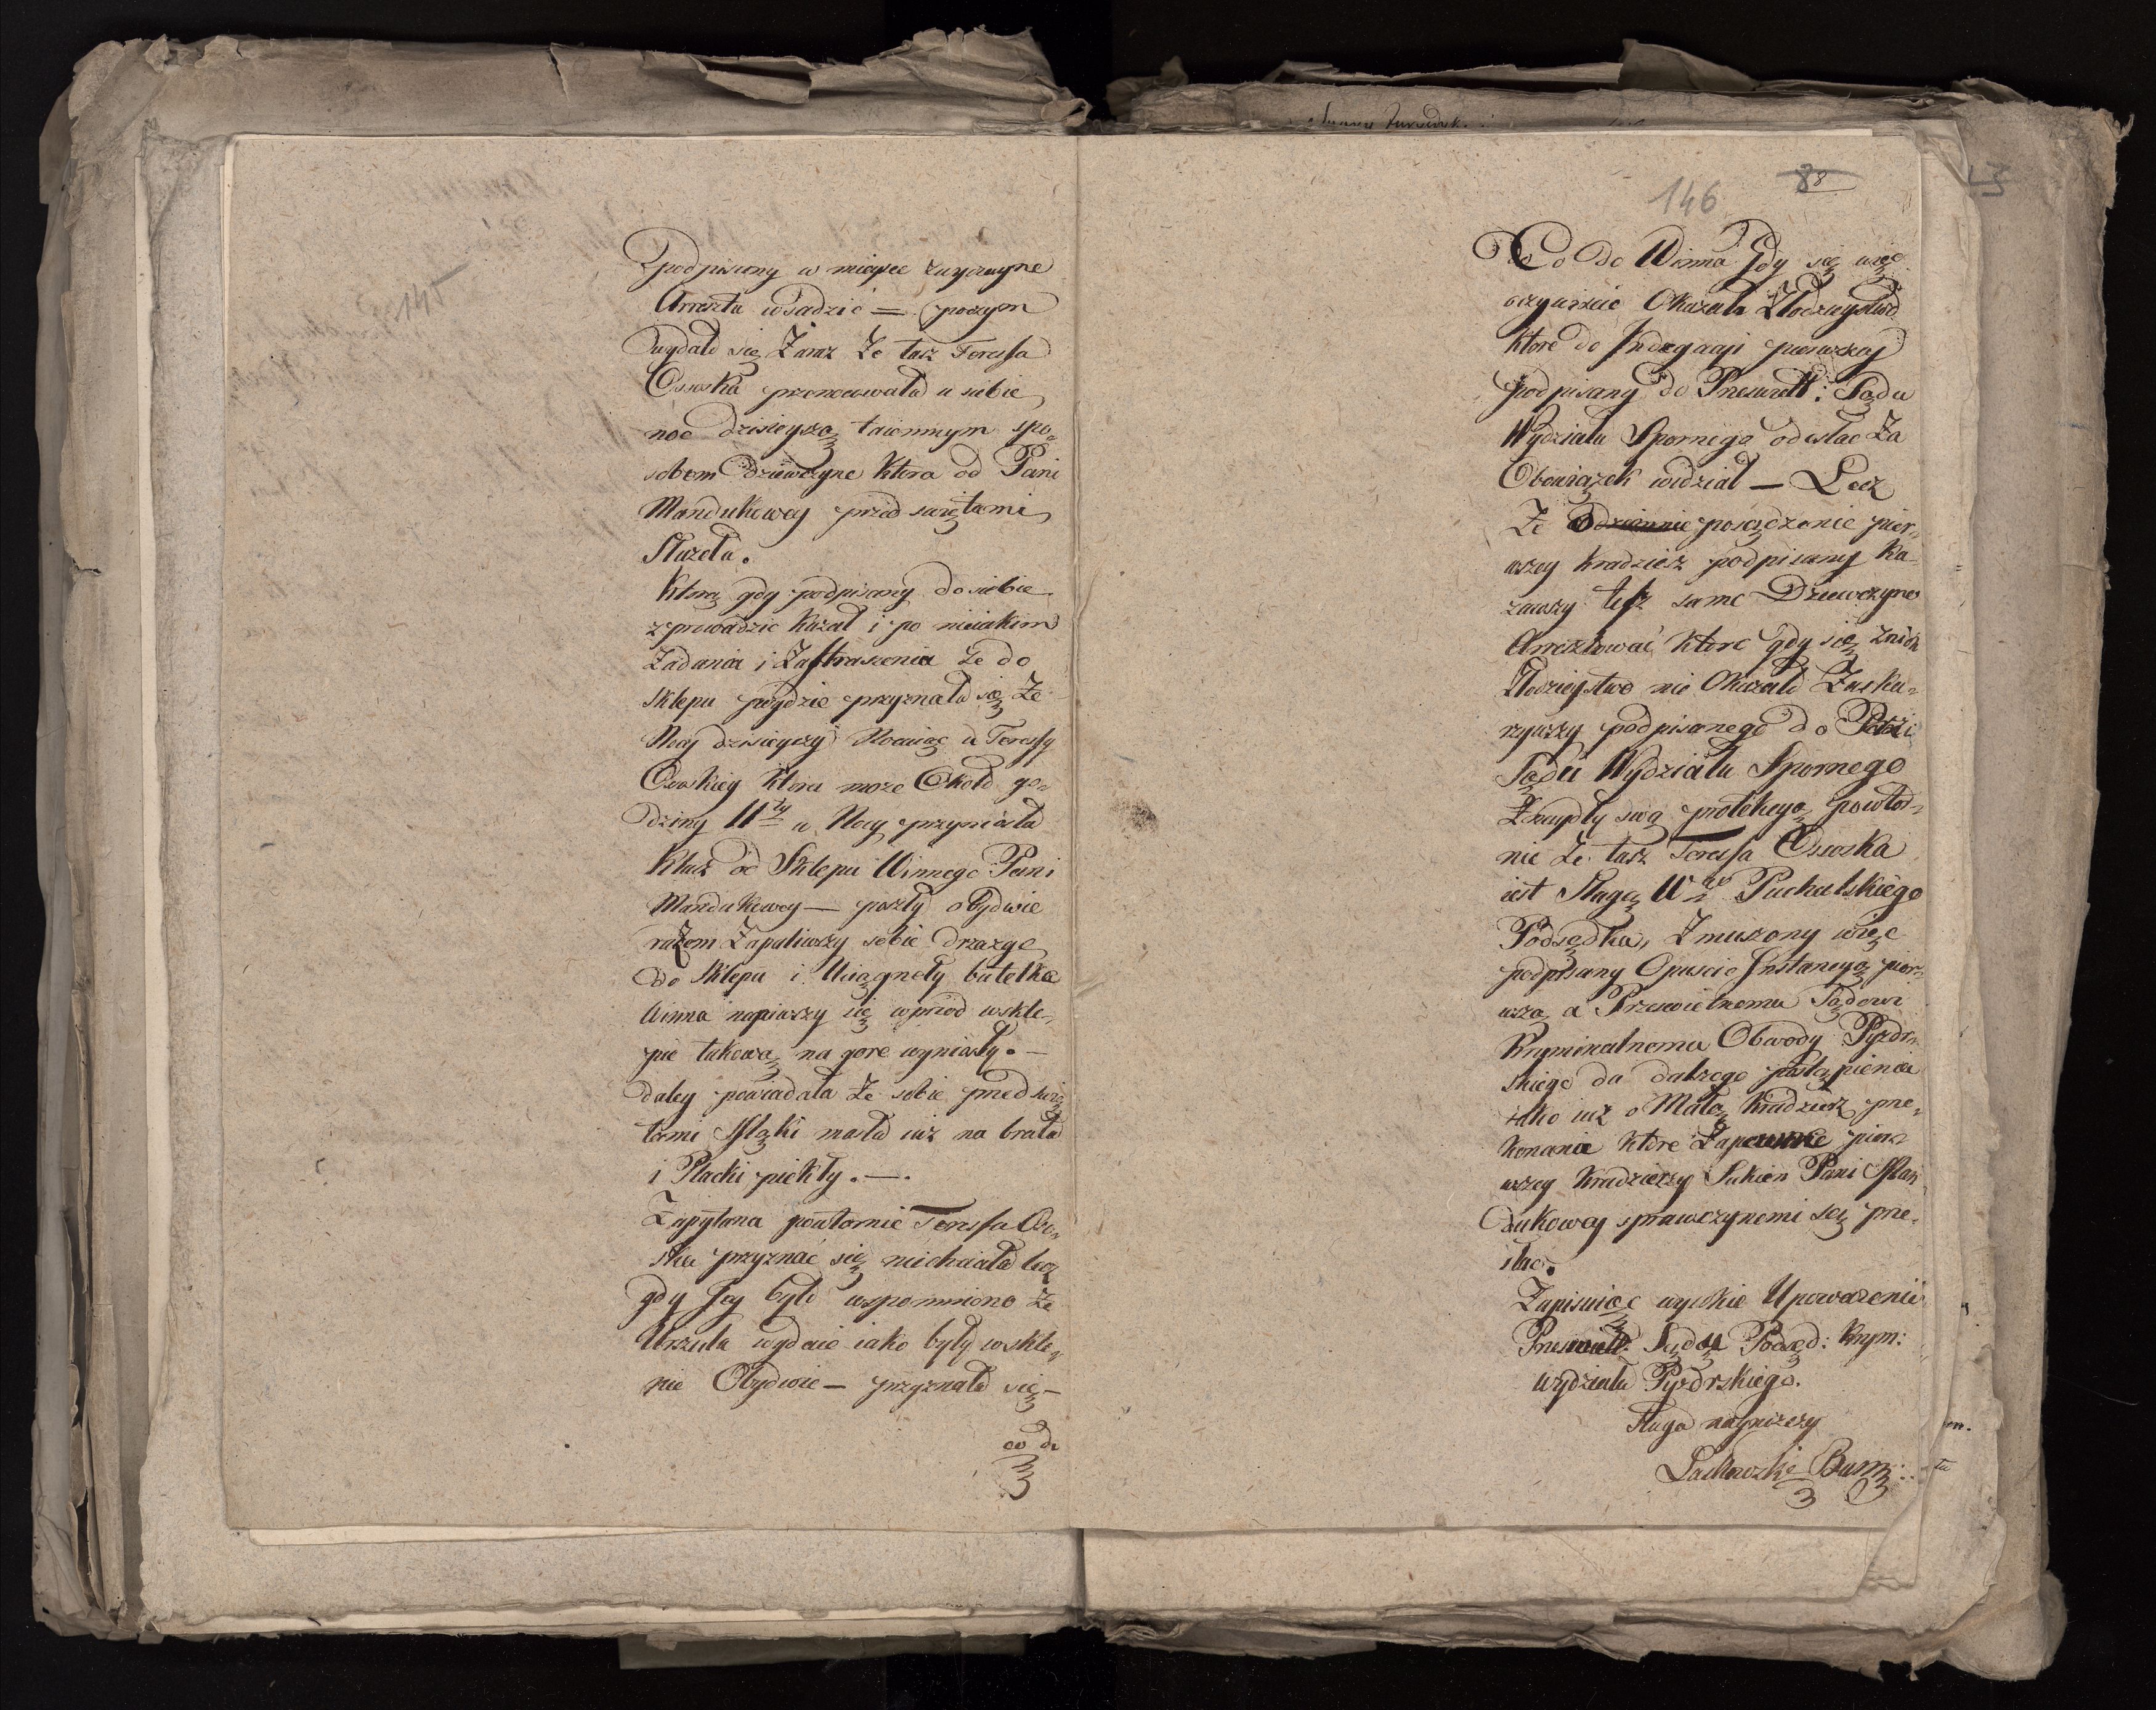 145
podpisany w mieysce zwyczayne
Aresztu wsadzić = poczym
wydało się Zaraz Że taż Teressa
Ososka przenocowała u siebie
noc dzisieyszą taiemnym spo-
sobem dziewczyne która od Pani
Mandukowey przed świętami
Służeła.
Którą gdy podpisany do siebie
zprowadzic kazał i po nieiakim
Żądania i Zastraszenia że do
sklepu póydzie przyznała się Że
Nocy dzisieyszy Nocuiąc u Teressy
Ososkiey która może Około go-
dziny 11ty w Nocy przyniosła
Klucz od Sklepu Winnego Pani
Mandukowey — poszły obydwie
razem Zapaliwszy sobie drzazgę
do Sklepu i Uciągneły butelkę
Winna napiwszy się wprzód w skle-
pie takową na gore wyniosły. —
daley powiadała Że sobie przed świę
tami
i Placki piekły. —
Zapytana powtornie Teressa Oso-
ska przyznać się niechciała lecz
gdy Jey było wspomniono że
Urszula wydaie iako były w skle-
pie Obydwie — przyznała się —
co do
146
88
Co do Winna Gdy się więc
oczywiście Okazało Złodzieystwo
które do Indagacyi pierwszey
podpisany do Przeświett: Sądu
Wydziału Spornego odesłac Za
Obowiązek widział — Lecz
Że posądzenie pier-
wszey kradzieży podpisany Ka-
zawszy też same Dziewczyne
Aresztować które gdy się
Złodzieystwo nie Okazało Zaska-
rzywszy podpisanego do
Sądu Wydziału Spornego
swą protekcyą powtor-
nie że taż Teressa Ososka
iest Sługą Wgo Puchalskiego
Podsędka, Zmuszony więc
podpisany Opuscic Instancyą pier-
wszą a Prześwietnemu Sądowi
Kryminalnemu Obwody Pyzdr-
skiego do dalszego postąpienia
iako iuż o Małą kradzież prze-
konanie które Zapewnie pier-
wszey kradzieży Sukien Pani Man-
dukowey sprawczynemi są prze-
słac.
Zapisuiąc Upoważenii
Przeświett. Sądu Podsęd: Krym:
Wydziału Pyzdrskiego.
Sługa nayniższy
Burm: